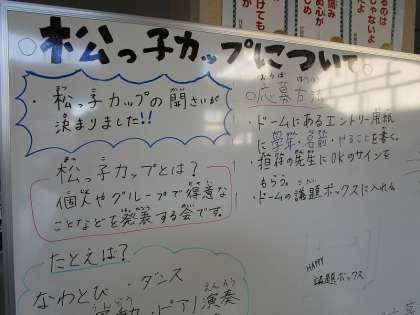 松っ子カップについて
・松っ子カップの開さいが
決まりました!!
松っ子カップとは?
個人やグループで得意な
ことなどを発表する会です。
たとえば?
なわとび・ダンス
ピアノ演奏
応募方法
・ドームにあるエントリー用紙
に学年・名前・やることを書く。
・担任の先生にOKのサインを
もらう。
・ドームの議題ボックスに入れる
HAPPY
議題ボックス